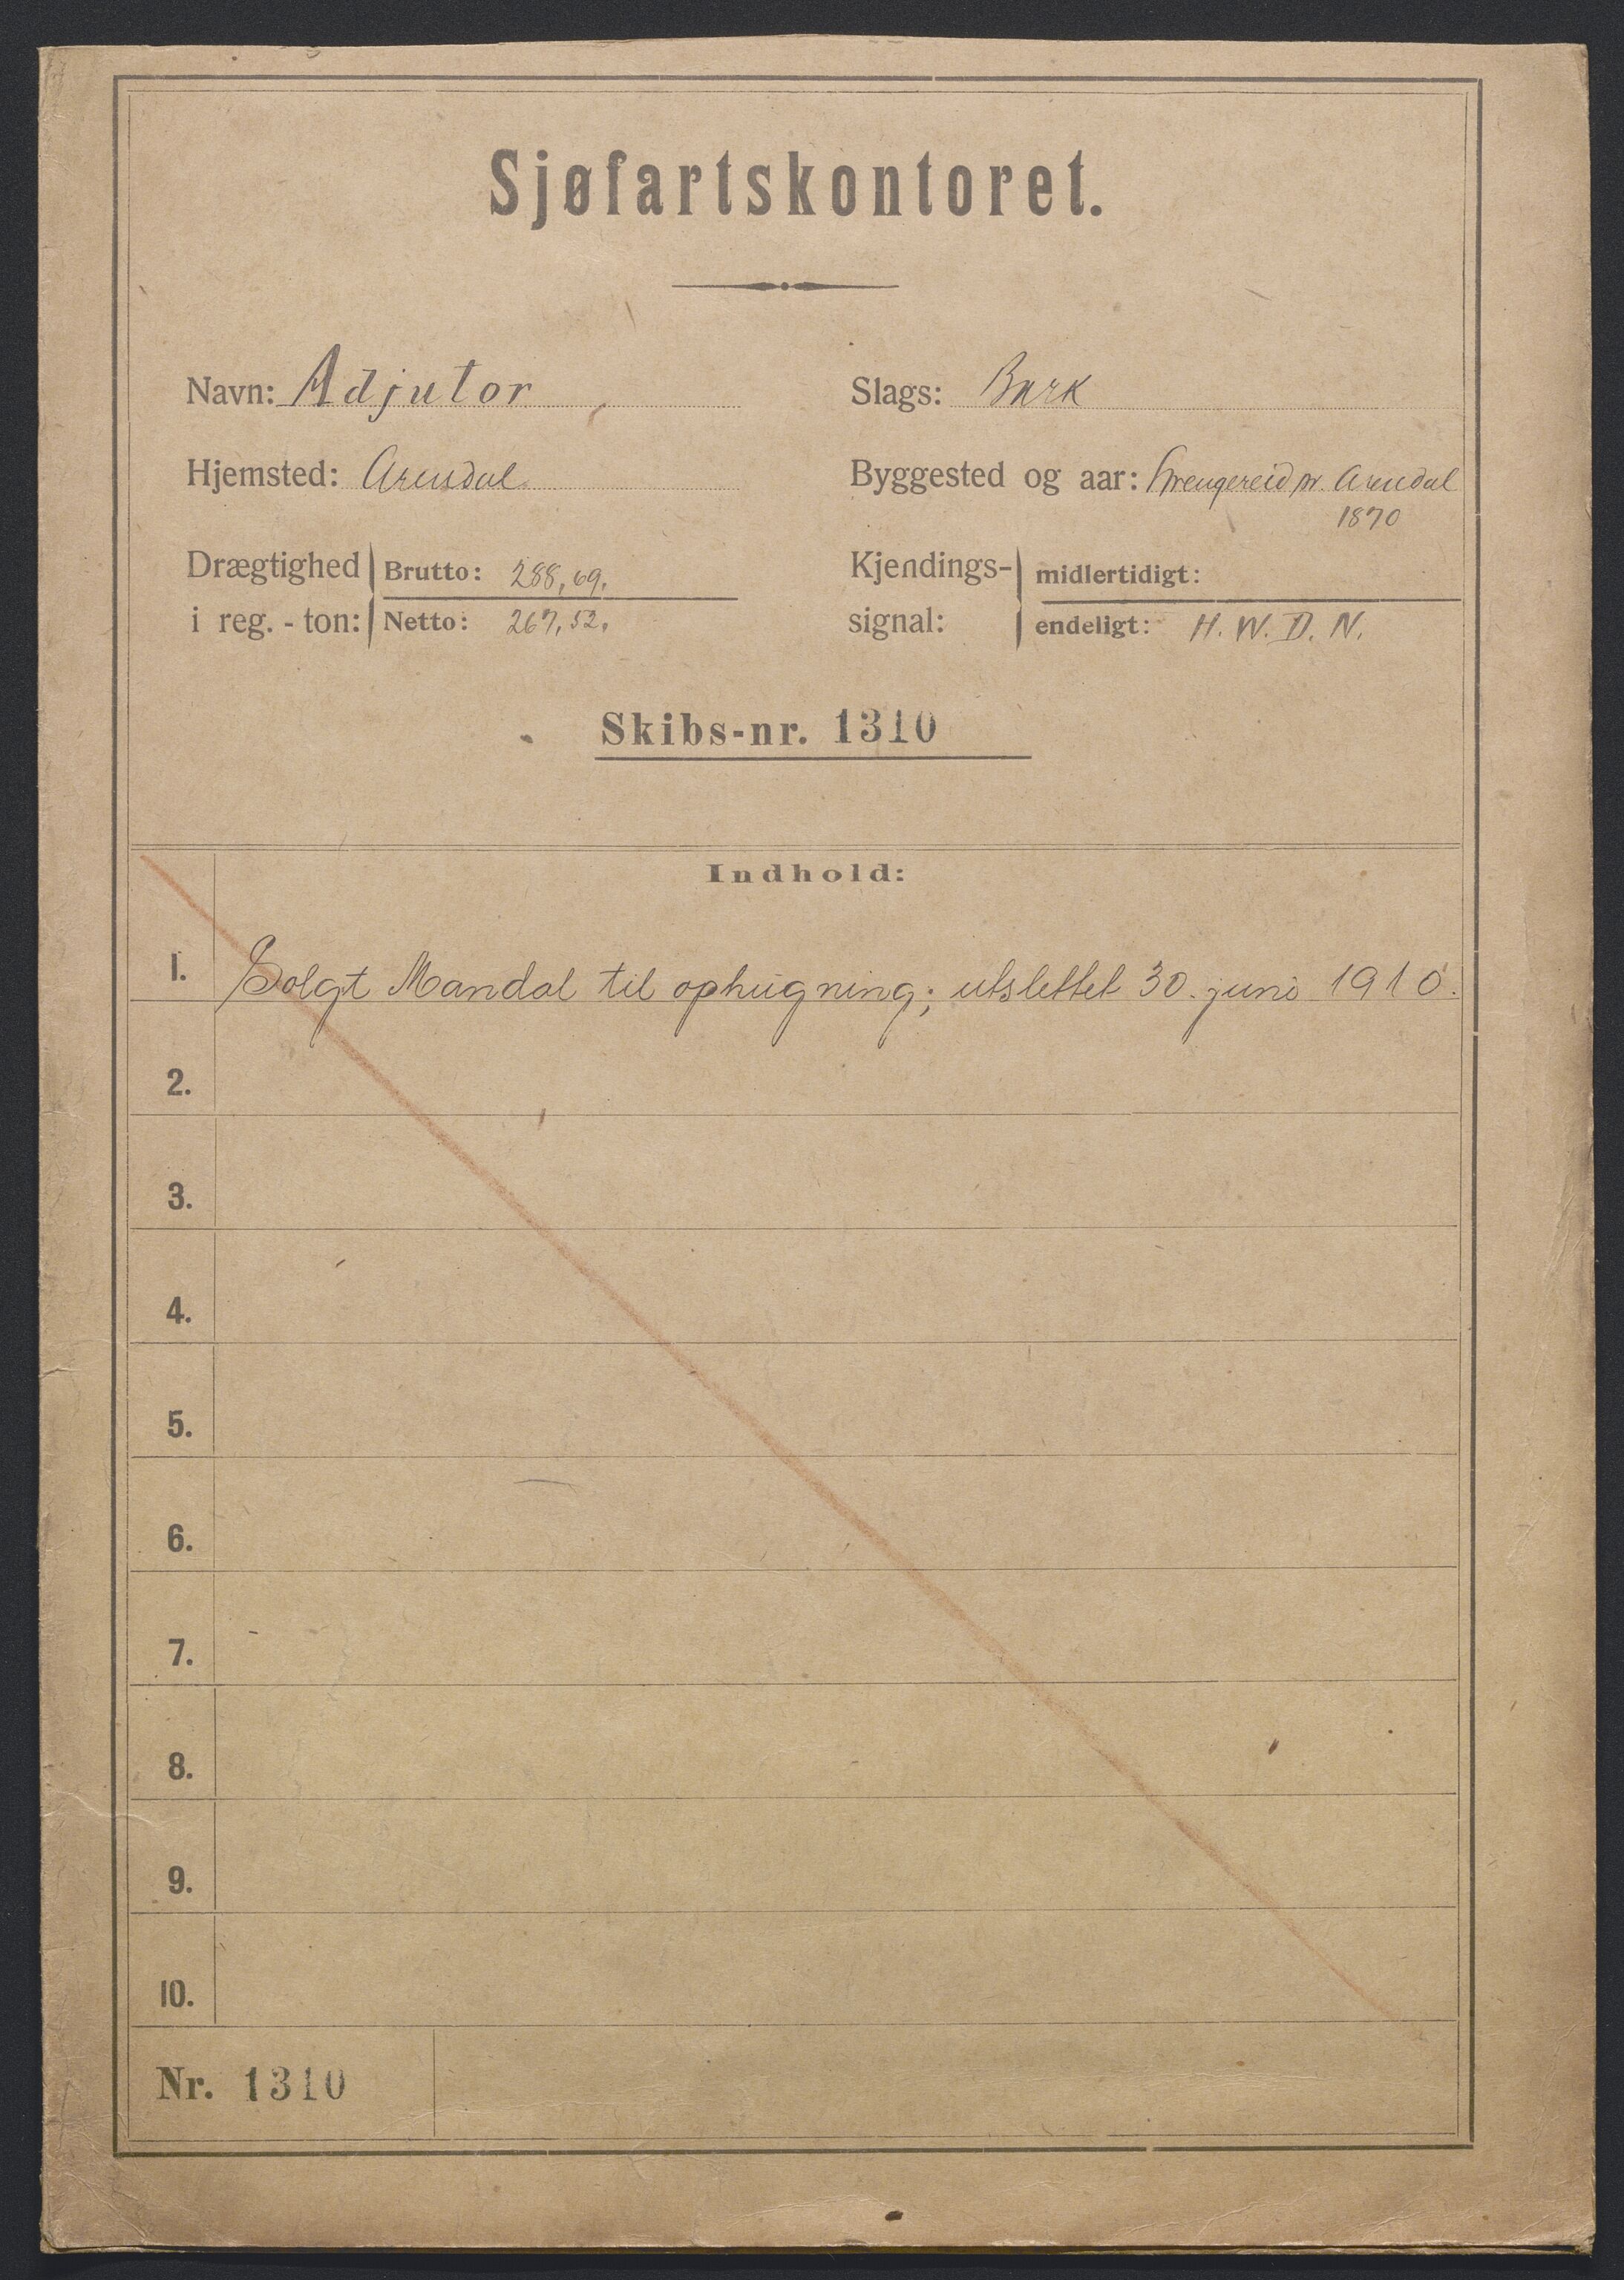 Sjøfartskontoret.
Navn: Adjutor
Slags: Bark
Hjemsted: Arendal
Byggested og aar: Strengereid pr. Arendal
1870
Drægtighed i reg. - ton: Brutto: 288,69.
Netto: 267,52.
Kjendings- signal: midlertidigt:
endeligt: H. W. D. N.
Skibs-nr. 1310
Indhold:
1. Solgt Mandal til ophugning; utslettet 30. juni 1910.
2.
3.
4.
5.
6.
7.
8.
9.
10.
Nr. 1310